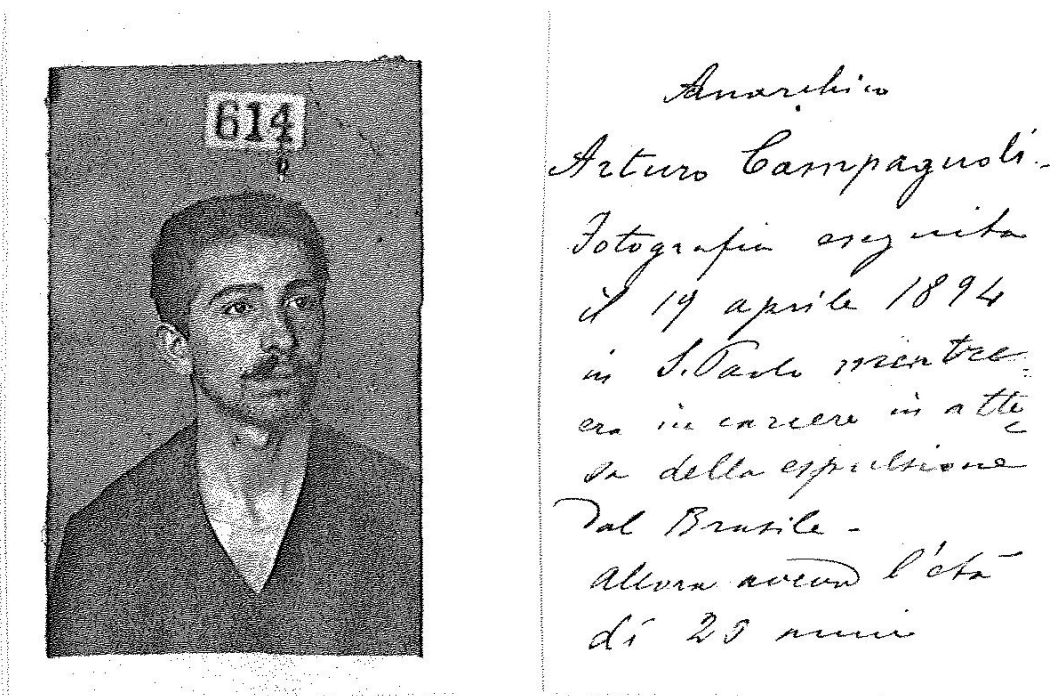 614
Anarchico
Arturo Campagnoli -
Fotografia eseguita
il 19 aprile 1894
in S. Paolo mentre
era in carcere in atte
sa della espulsione
dal Brasile -
Allora aveva l'età
di anni